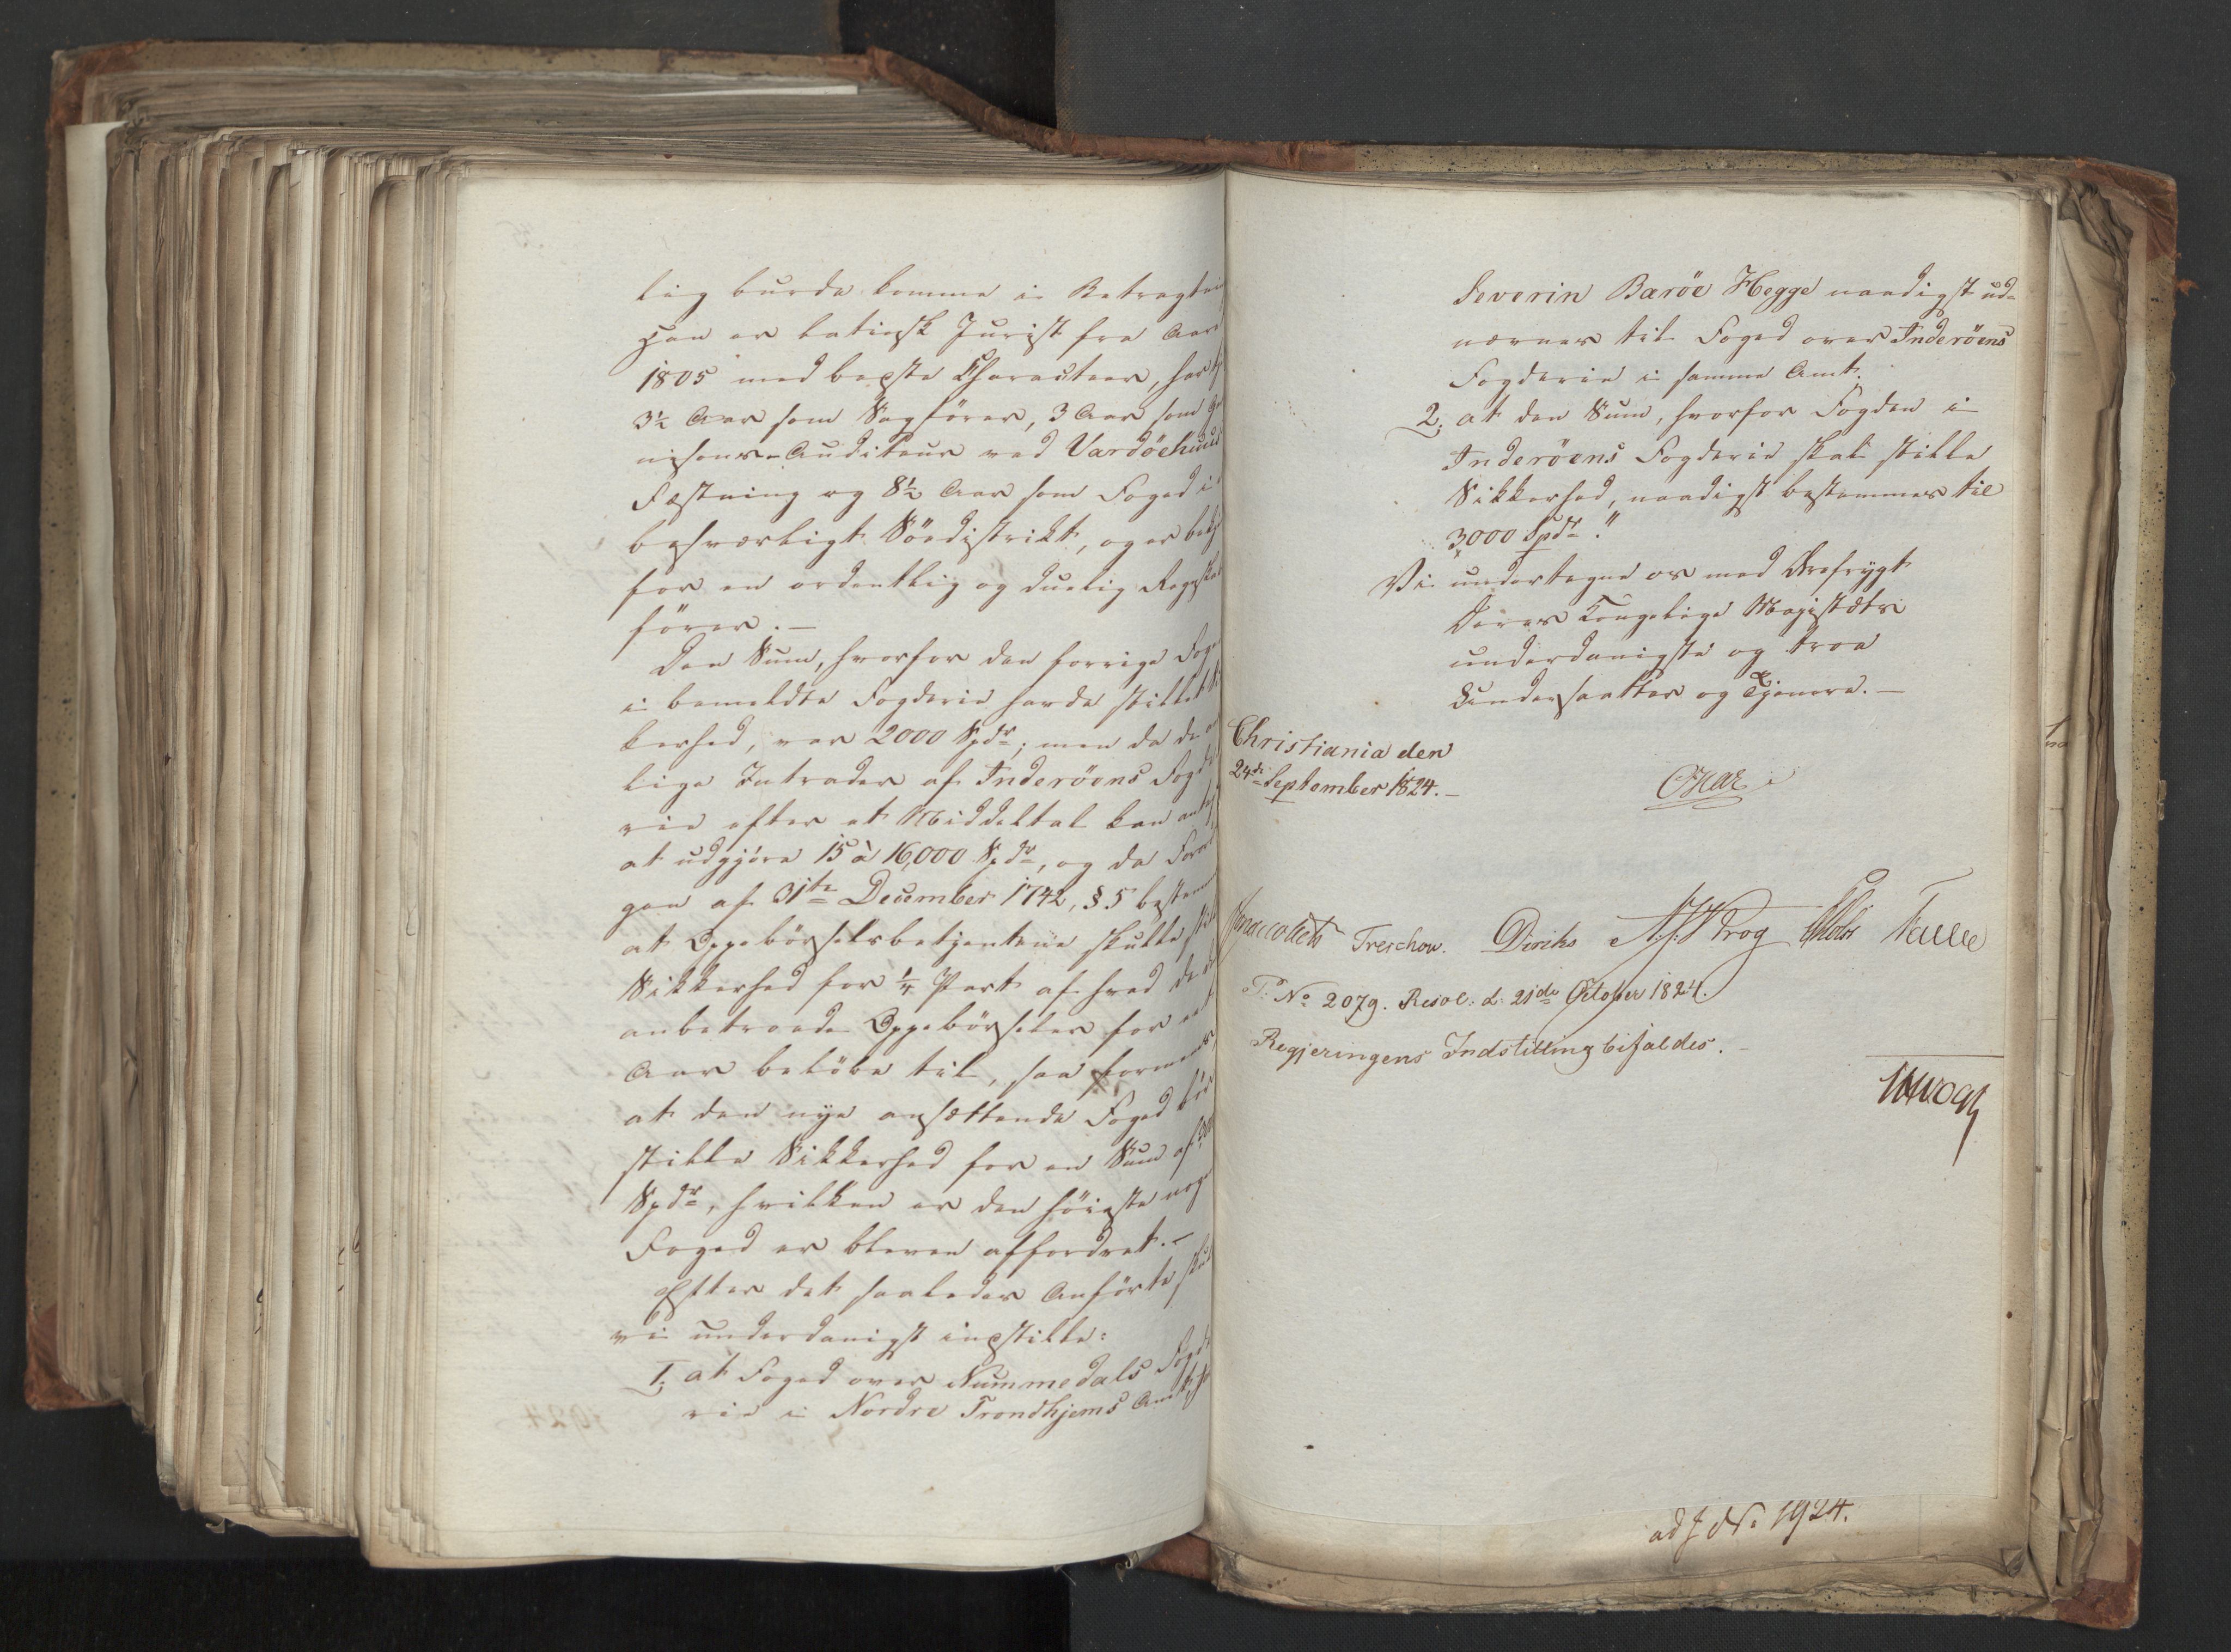 lig burde komme i Betragtni
Han er latinsk Jurist fra Aaret
1805 med bedste Character, har
3½ Aar som Sagfører, 3 Aar som Gar
nisons-Auditeur ved Vardöehuus
Fæstning og 8½ Aar som Foged i
besværligt Söedistrikt, og er bekj
for en ordentlig og duelig Regnskabs
förer. —
Den Sum, hvorfor den forrige Foge
i bemeldte Fogderie havde stillet Sik
kerhed, var 2000 Spdr; men da de
lige Intrader af Inderöens Fogde
rie efter et Middeltal kan antag
at udgjöre 15 à 16,000 Spdr, og da Forord
gen af 31te December 1742, § 5 bestemmer
at Oppebörselsbetjentene skulle stille
Sikkerhed for ¼ Part af hvad de
anbetroede Oppebörseler for eet
Aar belöbe til, saa formenes,
at den nye ansættende Foged bör
stille Sikkerhed for en Sum af
Spdr, hvilken er den höieste noge
Foged er bleven affordret. —
Efter det saaledes Anförte skul
vi underdanigst indstille:
1, at Foged over Nummedals Fogde
rie i Nordre Trondhjems Amt
Severin Baröe Hegge naadigst ud-
nævnes til Foged over Inderöens
Fogderie i samme Amt.
2, at den Sum, hvorfor Fogden i
Inderöens Fogderie skal stille
Sikkerhed, naadigst bestemmes til
3,000 Spdr."
Vi undertegne os med Ærefrygt
Deres Kongelige Majestæts
underdanigste og troe
Undersaatter og Tjenere. —
Christiania den
24de September 1824. —
Jonas Collett Treschow. Diriks Krog Motzfeldt Fasting
T: No 2079. Resol: d: 21de October 1824.
Regjeringens Indstilling bifaldes. —
ad J No 1924.